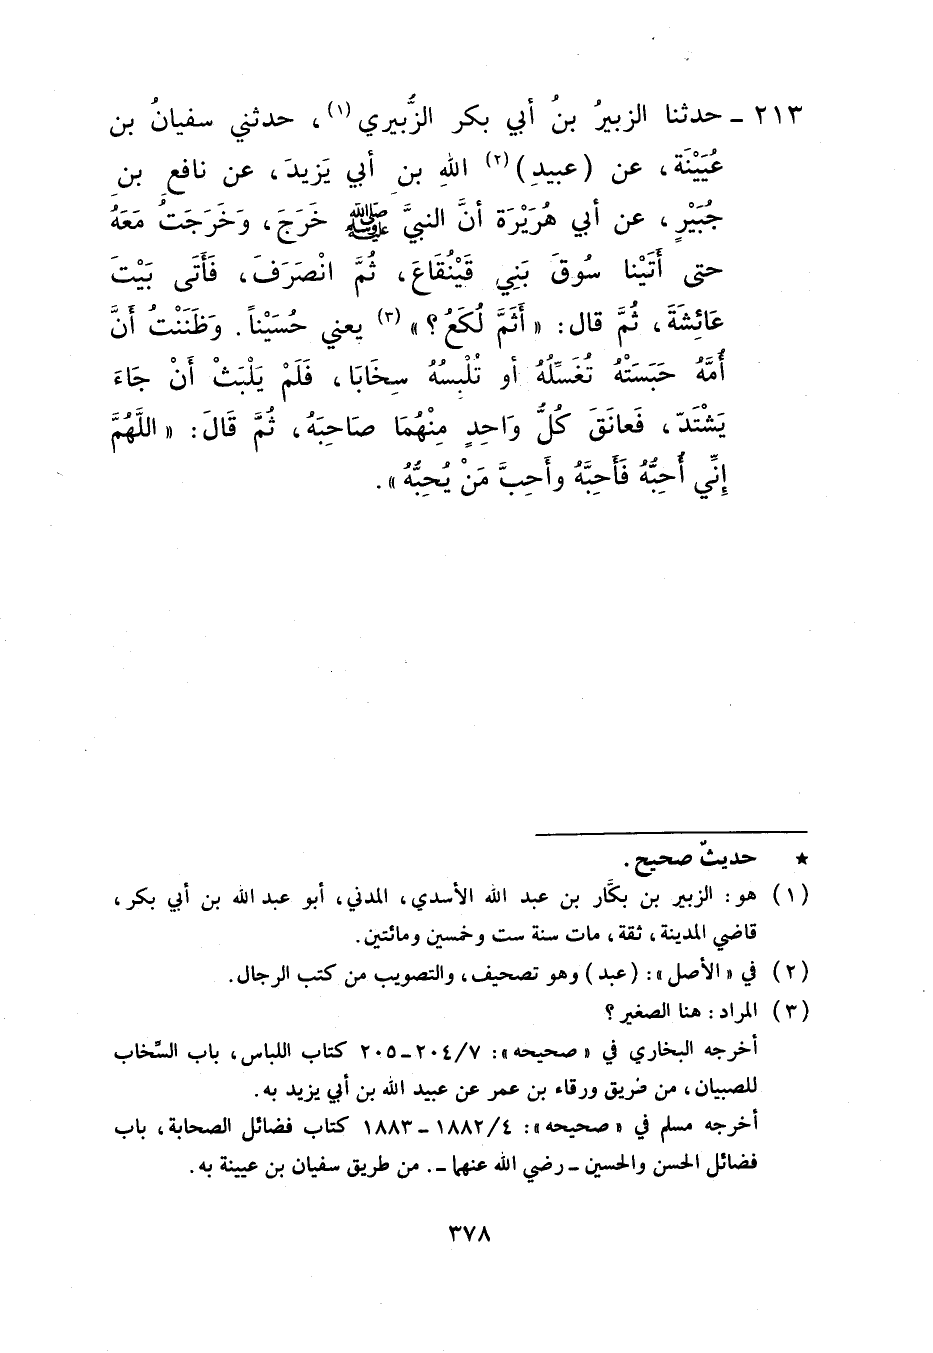 ٢١٣ ـ حدثنا الزبيرُ بنُ أبي بكر الزُّبيري (١)، حدثني سفيانُ بن
عُيَيْنَة، عن (عبيدِ) (٢) اللهِ بنِ أبي يَزيدَ، عن نافعِ بنِ
جُبَيْرٍ، عن أبي هُرَيْرَة أنَّ النبيَّ ﷺ خَرَجَ، وَخَرَجَتُ مَعَهُ
حتى أَتَيْنا سُوقَ بَنِي قَيْنُقَاعَ، ثُمَّ انْصَرَفَ، فَأَتَى بَيْتَ
عَائِشَةَ، ثُمَّ قال: «أَثَمَّ لُكَعُ؟» (٣) يعني حُسَيْناً. وَظَنَنْتُ أَنَّ
أُمَّهُ حَبَسَتْهُ تُغَسِّلُهُ أو تُلْبِسُهُ سِخَابَا، فَلَمْ يَلْبَثْ أَنْ جَاءَ
يَشْتَدّ، فَعانَقَ كُلُّ وَاحِدٍ مِنْهُمَا صَاحِبَهُ، ثُمَّ قَالَ: «اللَّهُمَّ
إِنِّي أُحِبُّهُ فَأَحِبَّهُ وأَحِبَّ مَنْ يُحِبُّهُ».
★ حديثٌ صحيح.
(١) هو: الزبير بن بكَّار بن عبد الله الأسدي، المدني، أبو عبد الله بن أبي بكر،
قاضي المدينة، ثقة، مات سنة ست وخمسين ومائتين.
(٢) في «الأصل»: (عبد) وهو تصحيف، والتصويب من كتب الرجال.
(٣) المراد: هنا الصغير؟
أخرجه البخاري في «صحيحه»: ٧/ ٢٠٤ ـ ٢٠٥ كتاب اللباس، باب السِّخاب
للصبيان، من طريق ورقاء بن عمر عن عبيد الله بن أبي يزيد به.
أخرجه مسلم في «صحيحه»: ٤/ ١٨٨٢ ـ ١٨٨٣ كتاب فضائل الصحابة، باب
فضائل الحسن والحسين ـ رضي الله عنهما ـ. من طريق سفيان بن عيينة به.
٣٧٨